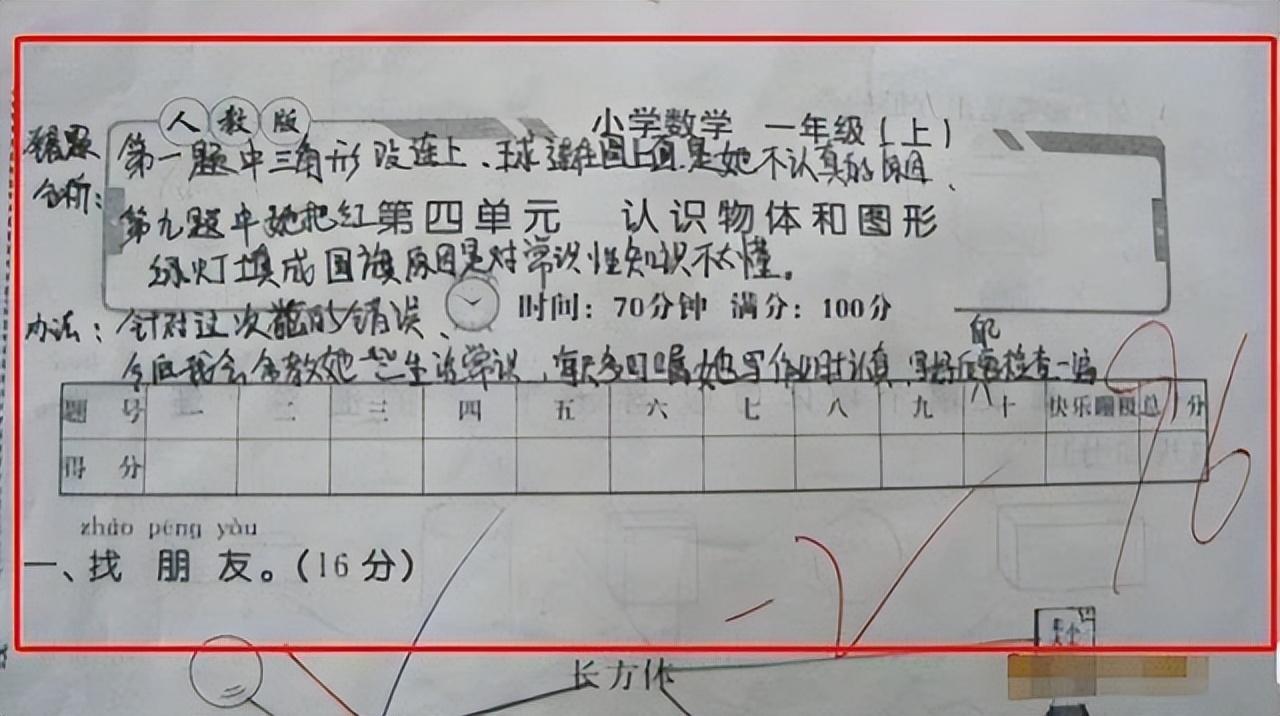 人教版
小学数学 一年级(上)
错题
分析:
第一题中三角形没连上、球连在圆上面.是她不认真的原因、
第九题中她把红
第四单元 认识物体和图形
绿灯填成国旗原因是对常识性知识不太懂。
时间: 70分钟 满分: 100分
办法: 针对这次的错误、
今后我会多教她一些生活常识,每天多叮嘱她写作业时认真,写好后再检查一遍
96
题 号 一 二 三 四 五 六 七 八 九 十 总 分
得 分
zhǎo péng yǒu
一、找 朋 友。(16分)
长方体